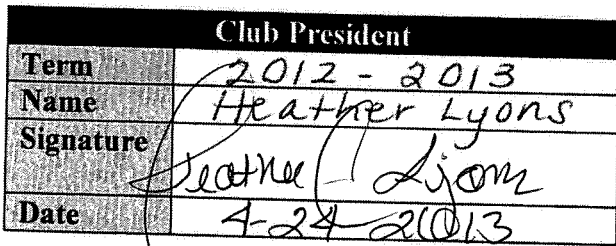 Club President
Term 2012 - 2013
Name Heather Lyons
Signature Heather Lyons
Date 4-24-2013